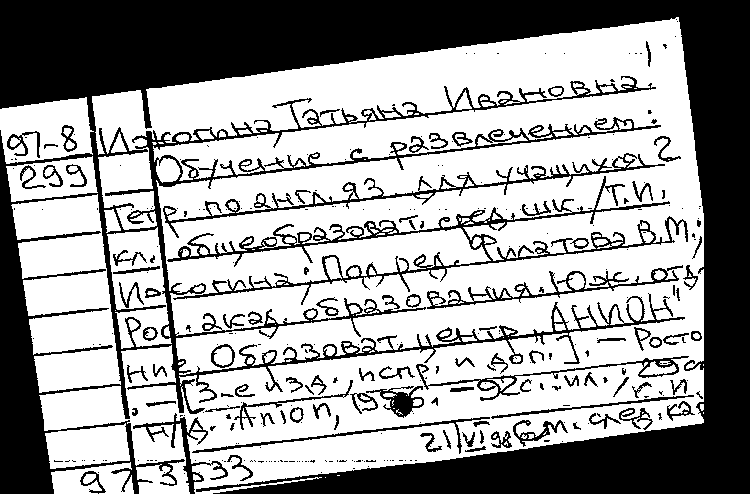 1.
97-8 Ижогина, Татьяна Ивановна.
299 Обучение с развлечением:
Тетр. по англ. яз. для учащихся 2
кл. общеобразоват. сред. шк. / Т.И.
Ижогина; Под ред. Филатова В.М.;
Рос. акад. образования. Юж. отд-
ние, Образоват. центр "АНИОН"
. — [3-е изд., испр. и доп.]. — Росто
н/Д. : Anion, 1996. — 92с. : ил. ; 29см
21/VI 98 См. след. кар
97-3533